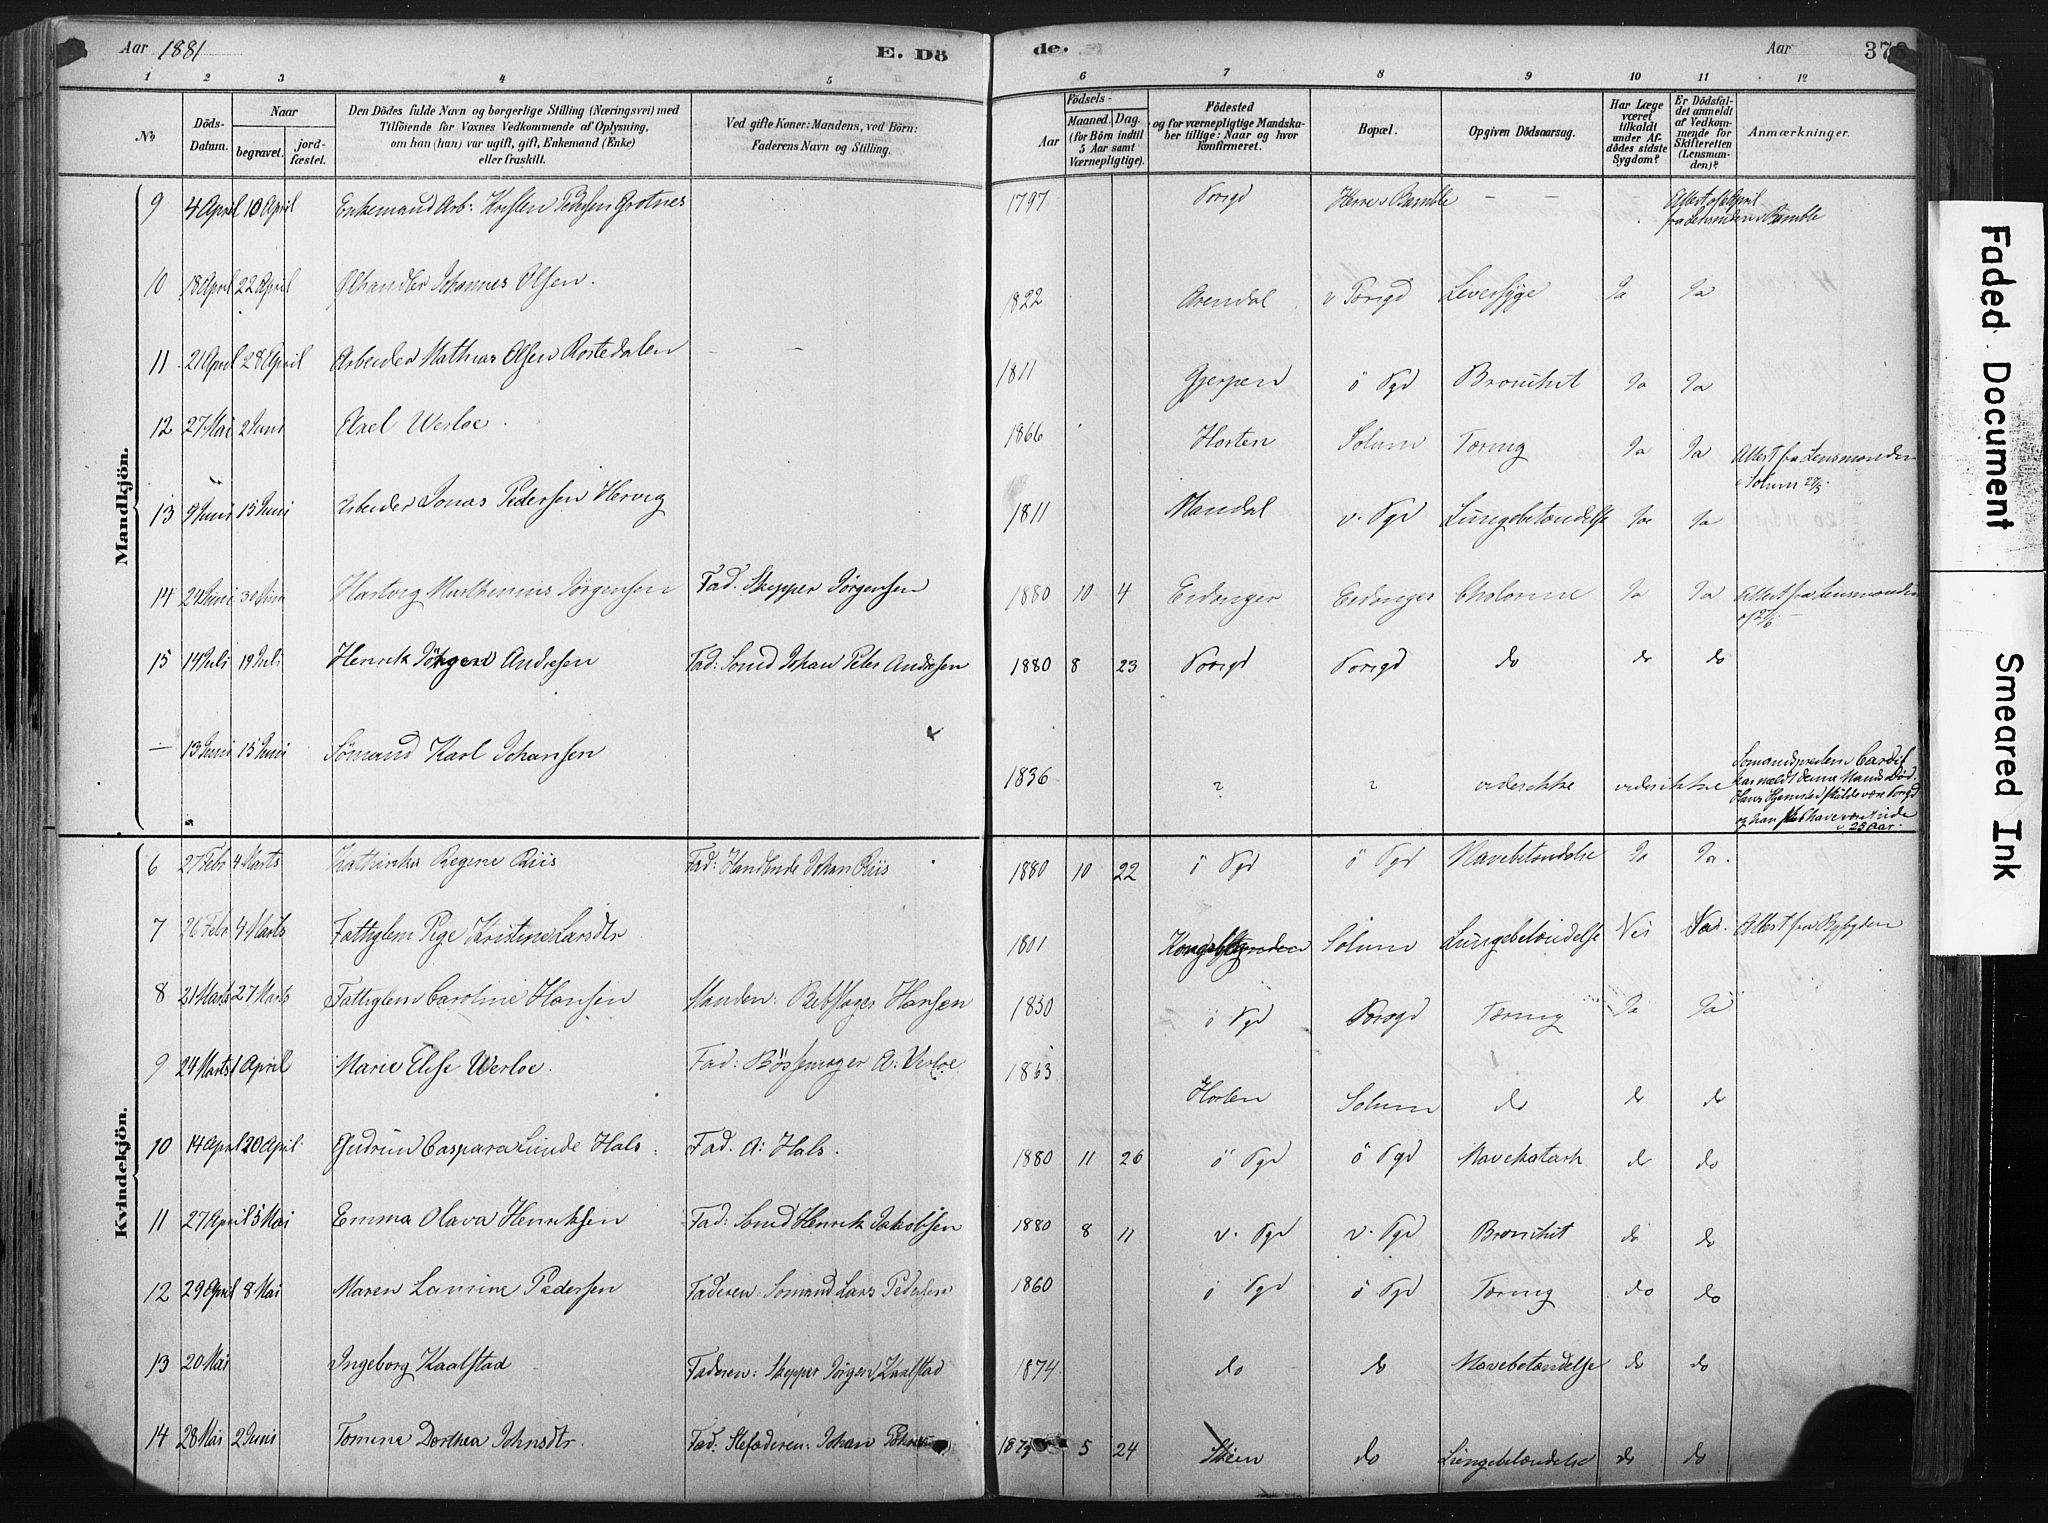 Aar 1881 E. Dö de. Aar 378
1 2 3 4 5 6 7 8 9 10 11 12
No Döds-Datum. Naar begravet. jordfæstet. Den Dödes fulde Navn og borgerlige Stilling (Næringsvei) med Tilföiende for Voxnes Vedkommende af Oplysning, om han (hun) var ugift, gift, Enkemand (Enke) eller fraskilt. Ved gifte Koner: Mandens, ved Börn: Faderens Navn og Stilling. Födsels- Aar Maaned. Dag. (for Börn indtil 5 Aar samt Værnepligtige). Födested og for værnepligtige Mandskaber tillige: Naar og hvor konfirmeret. Bopæl. Opgiven Dödsaarsag. Har Læge været tilkaldt under Afdödes sidste Sygdom? Er Dödsfaldet anmeldt af Vedkommende for Skifteretten (Lensmanden)? Anmærkninger.
Mandkjön.
9 4 April 10 April Enkemand Arb: Kristen Pedersen Grotnes 1797 Porsgd Herre i Bamble — — Attest af April fra Lensmanden i Bamble
10 18 April 22 April Ølhandler Johannes Olsen. 1822 Arendal v Porsgd Leversyge Ja Ja
11 21 April 28 April Arbeider Mathias Olsen Rostedalen — — 1811 Gjerpen ö Pgd Bronchit Ja Ja
12 27 Mai 2 Juni Axel Werloe. 1866 Horten Solum Tæring Ja Ja Attest fra Lensmanden i Solum 27/5.
13 9 Juni 15 Juni Arbeider Jonas Pedersen Hervig 1811 Mandal v. Pgd Lungebetændelse Ja Ja
14 24 Juni Hartvig Marthinius Jørgensen Fad. Skipper Jørgensen 1880 10 4 Eidanger Eidanger Cholerine Ja Ja Attest fra Lensmanden
15 14 Juli 19 Juli Henrik Jörgen Andresen Fad: Sømd Johan Peter Andresen 1880 8 23 Porsgd Porsgd do do do
— 13 Juni 15 Juni Sömand Karl Johansen 1836 ? ? vides ikke vides ikke Sømandspresten i Cardif har meldt denne Mands Död. Hans Hjemsted skulde være Porsgd og han skal have været ude i 23 Aar.
Kvindekjön.
6 27 Febr 4 Marts Kathinka Regine Riis Fad: Handlende Johan Riis 1880 10 22 ö Pgd ö Pgd Mavebetændelse Ja Ja.
7 26 Febr 4 Marts Fattiglem Pige Kristine Larsdtr 1801 Solum Lungebetændelse Nei Attest fra Byfogden
8 21 Marts 27 Marts Fattiglem Caroline Hansen Manden: Rebslager Hansen 1830 ö Pgd Porsgd Tæring Ja Ja
9 24 Marts 1 April Marie Elise Werloe. Fad: Bössemager A: Verloe 1863 Horten Solum do do do
10 14 April 20 April Gudrun Caspara Lunde Hals. Fad. A: Hals. 1880 11 26 ö Pgd ö Pgd Mavekatarh do do
11 27 April 5 Mai Emma Olava Henriksen Fad: Sømd Henrik Jakobsen 1880 8 11 v. Pgd v. Pgd Bronchit do do
12 29 April 8 Mai Maren Laurine Pedersen Faderen: Sømand Lars Pedersen 1860 ö Pgd ö Pgd Tæring do do
13 20 Mai Ingeborg Kaalstad Faderen: Skipper Jörgen Kaalstad 1874 do do Mavebetændelse do do
14 28 Mai 2 Juni Tomine Dorthea Johnsdtr. Fad: Stefaderen: Johan 187 5 24 Skien do Lungebetændelse do do
Faded Document
Smeared Ink